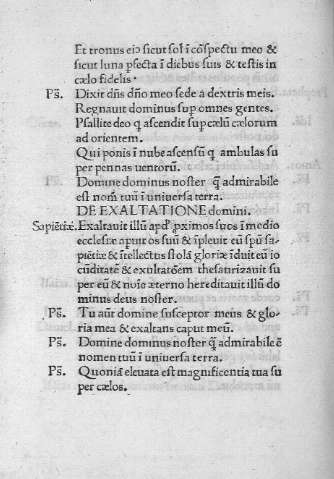 Et tronus eiꝰ sicut sol ī cōspectu meo &
sicut luna ꝑfecta ī diebus suis & testis in
cælo fidelis.
Ps̄. Dixit dn̄s dn̄o meo sede a dextris meis.
Regnauit dominus sup omnes gentes.
Psallite deo q̄ ascendit sup cælū cælorum
ad orientem.
Qui ponis ī nube ascensū q̄ ambulas su
per pennas uentorū.
Domine dominus noster q̄ admirabile
est nom̄ tuū ī uniuersa terra.
DE EXALTATIONE domini.
Sapiētiæ. Exaltauit illū apd̄ ꝓximos suos ī medio
ecclesiæ aꝑuit os suū & īpleuit eū spū sa
piētiæ & ītellectus stolā gloriæ īduit eū io
cūditatē & exultatōem thesaurizauit su
per eū & noīe æterno hereditauit illū do
minus deus noster.
Ps̄. Tu aūt domine susceptor meus & glo
ria mea & exaltans caput meū.
Ps̄. Domine dominus noster q̄ admirabile ē
nomen tuū ī uniuersa terra.
Ps̄. Quoniā eleuata est magnificentia tua su
per cælos.